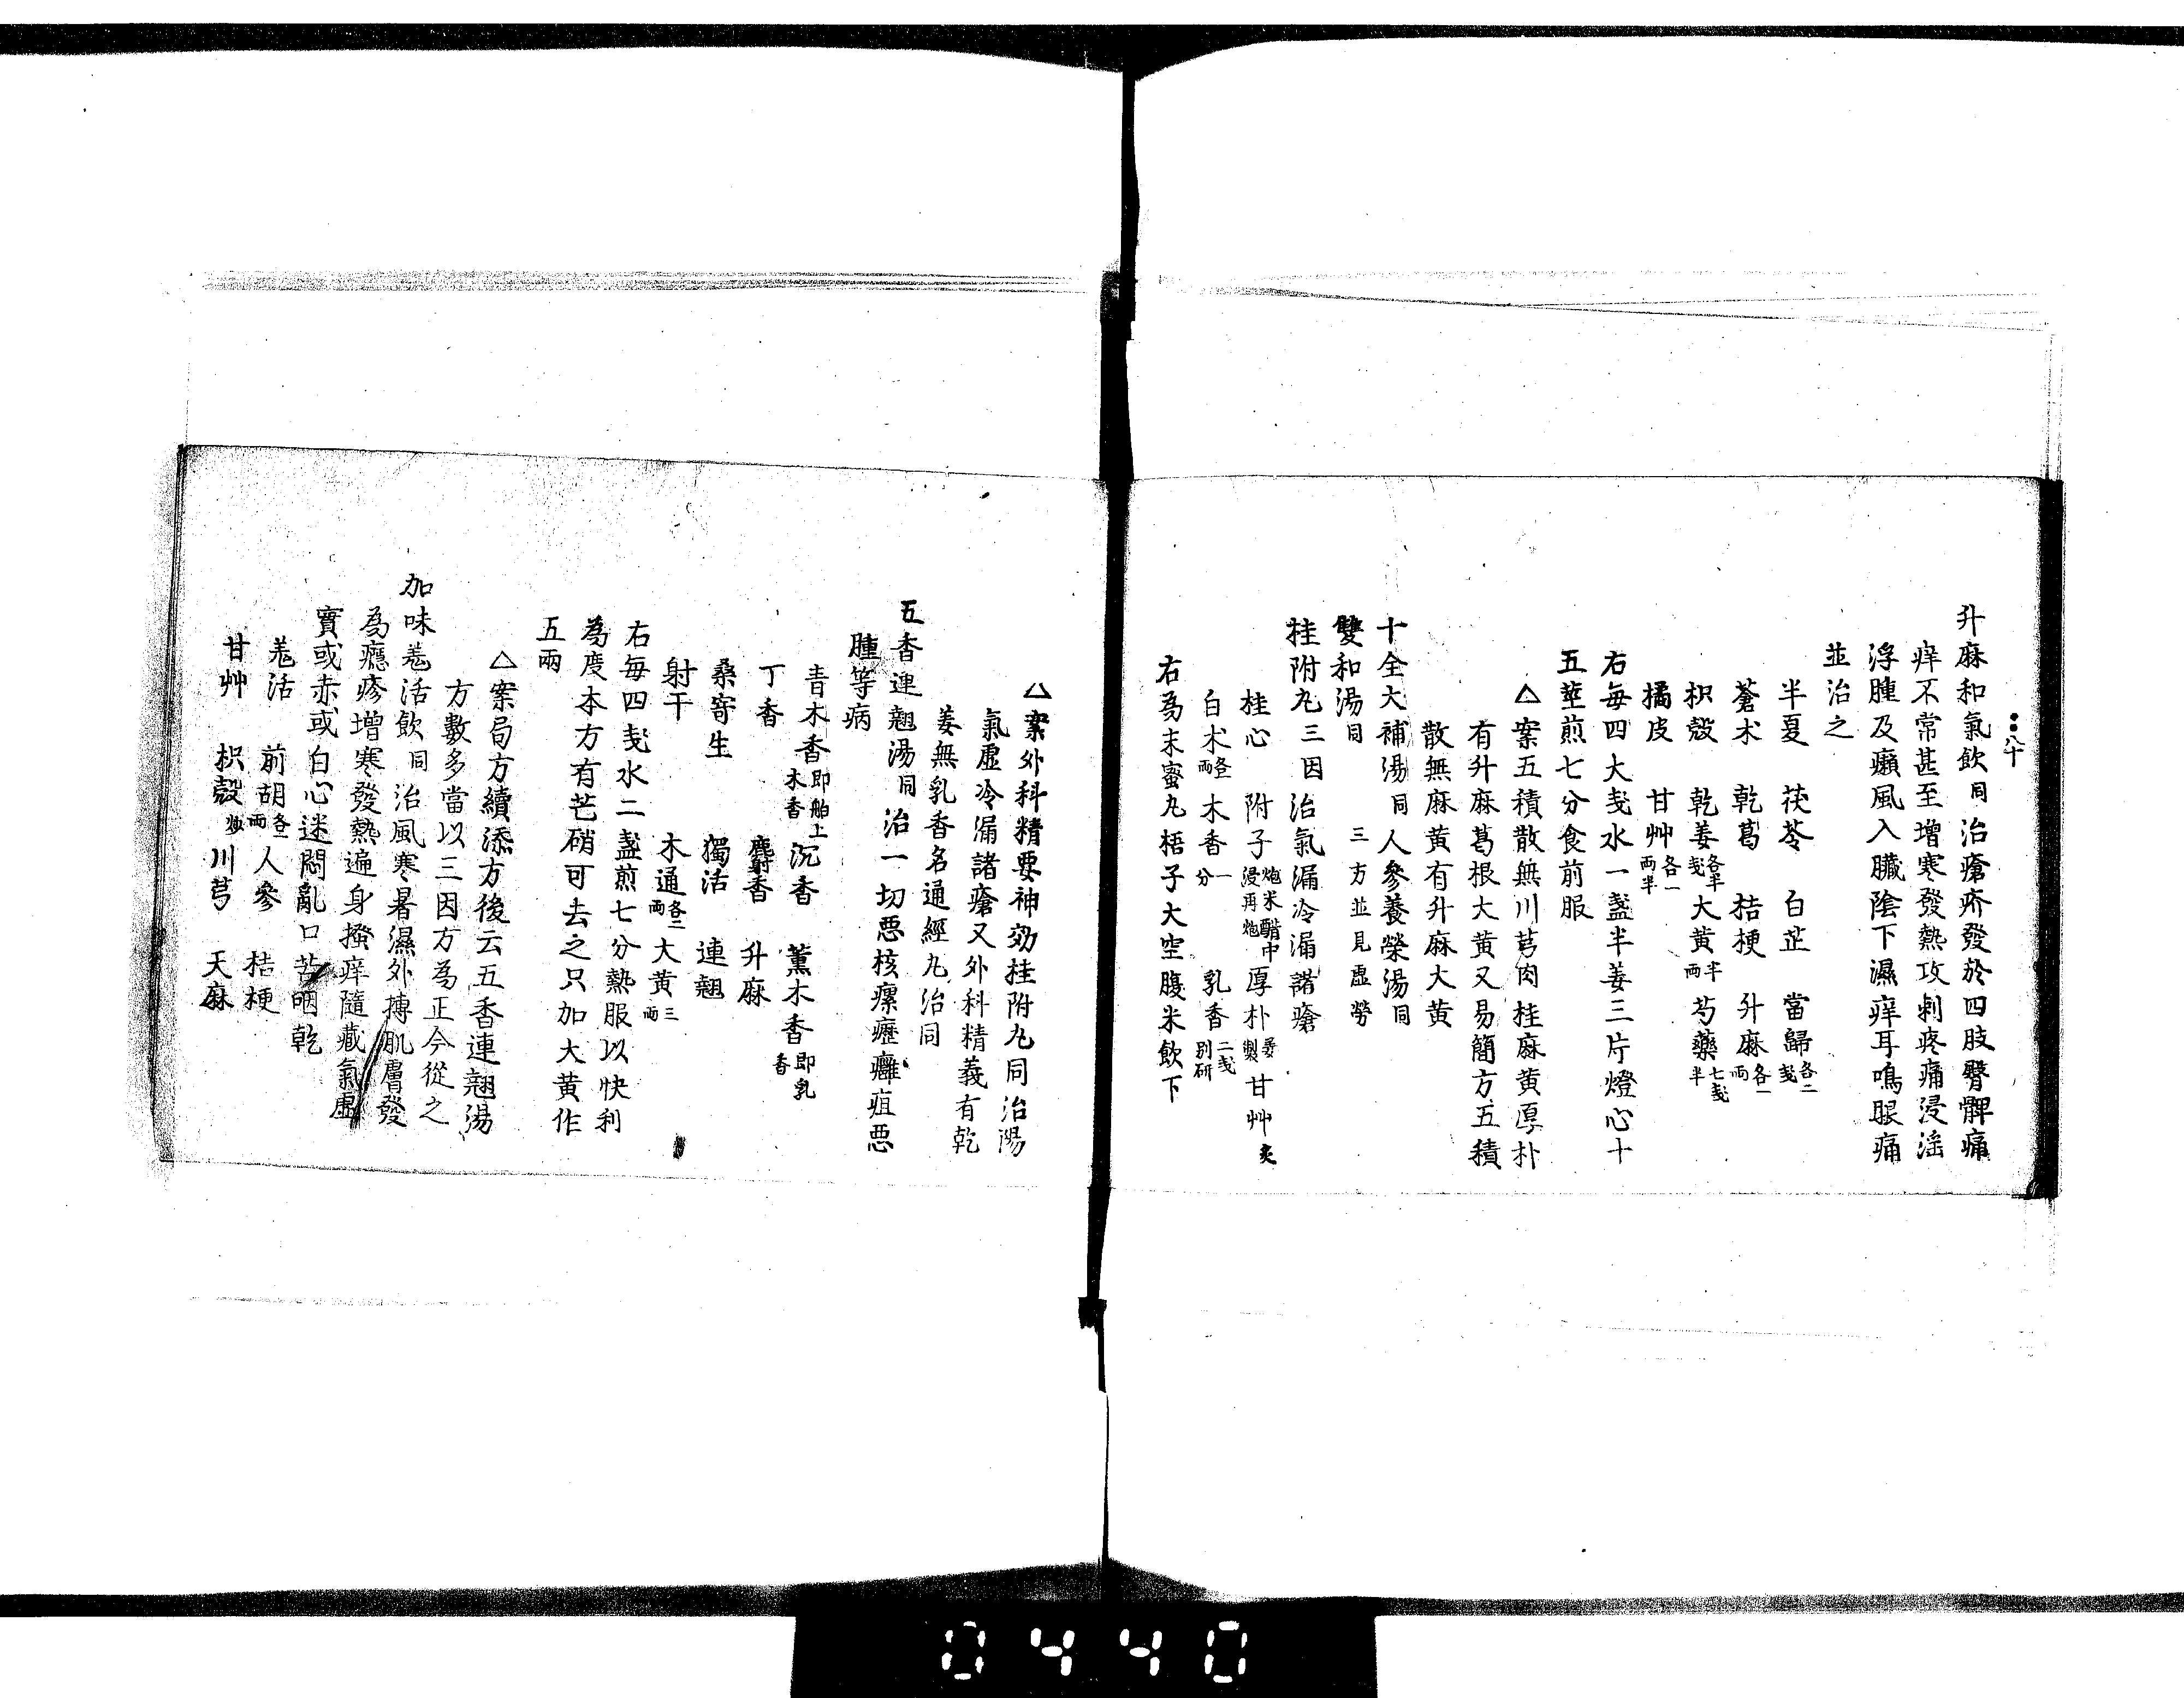 八十
升麻和氣飲同治瘡疥發於四肢臀髀痛
痒不常甚至增寒發熱攻刺疼痛浸淫
浮腫及癩風入臟陰下濕痒耳鳴眼痛
並治之
半夏 茯苓 白芷 當歸各二戔
蒼朮 乾葛 桔梗 升麻各一兩
枳殼 乾姜各半戔 大黄半兩 芍藥七戔半
橘皮 甘艸各一兩半
右每四大戔水一盞半姜三片燈心十
五莖煎七分食前服
△案五積散無川芎肉桂麻黄厚朴
有升麻葛根大黄又易簡方五積
散無麻黄有升麻大黄
十全大補湯同人參養榮湯同
雙和湯同 三方並見虛勞
桂附丸三因治氣漏冷漏諸瘡
桂心 附子炮米醋中浸再炮 厚朴姜製 甘艸炙
白朮各一兩 木香一分 乳香二戔別研
右為末蜜丸梧子大空腹米飲下
△案外科精要神効桂附丸同治陽
氣虛冷漏諸瘡又外科精義有乾
姜無乳香名通經丸治同
五香連翹湯同治一切惡核瘰癧癰疽惡
腫等病
青木香即舶上木香 沉香 薰木香即乳香
丁香 麝香 升麻
桑寄生 獨活 連翹
射干 木通各二兩 大黄三兩
右每四戔水二盞煎七分熱服以快利
為度本方有芒硝可去之只加大黄作
五兩
△案局方續添方後云五香連翹湯
方數多當以三因方為正今從之
加味羗活飲同治風寒暑濕外搏肌膚發
為癮疹增寒發熱遍身搔痒隨藏氣虛
實或赤或白心迷悶亂口苦咽乾
羗活 前胡各一兩 人參 桔梗
甘艸 枳殼 川芎 天麻
0440